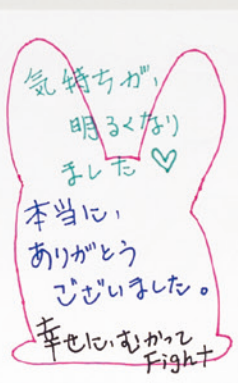 気持ちが、
明るくなり
ました♡
本当に、
ありがとう
ございました。
幸せに、むかって
Fight